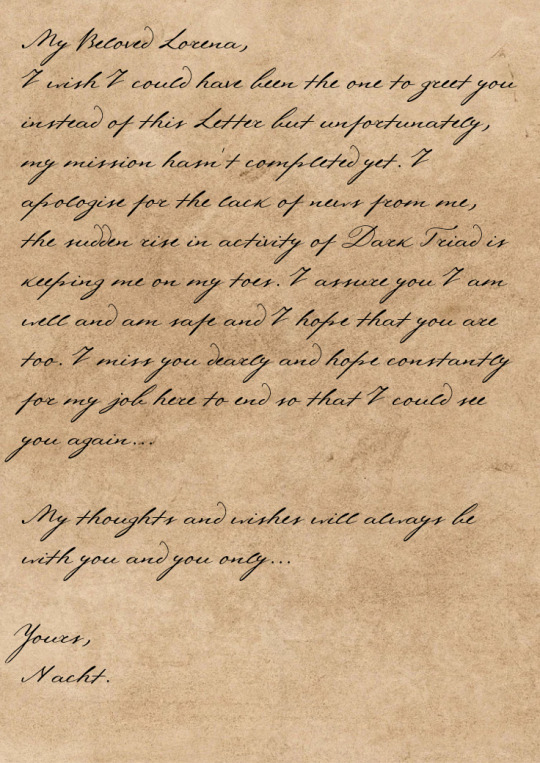 My Beloved Lorena,
I wish I could have been the one to greet you
instead of this Letter but unfortunately,
my mission hasn't completed yet. I
apologise for the lack of news from me,
the sudden rise in activity of Dark Triad is
keeping me on my toes. I assure you I am
well and am safe and I hope that you are
too. I miss you dearly and hope constantly
for my job here to end so that I could see
you again...
My thoughts and wishes will always be
with you and you only...
Yours,
Nacht.